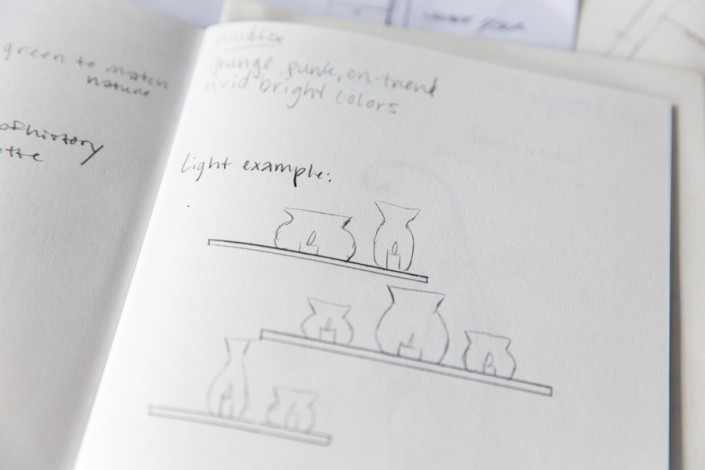 green to match
nature
of history
grunge, punk, on-trend
vivid bright colors
light example: